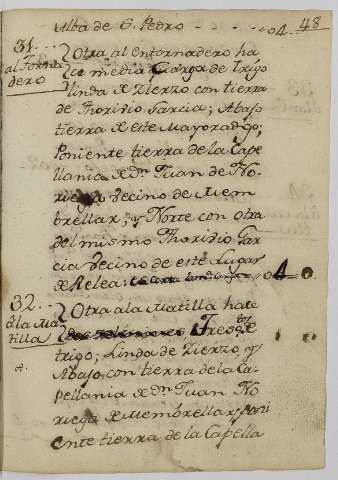 Alba de S. Pedro - - - - - 04. 48
31.. Otra al entornadero ha
al Torna
dero ce media Carga de trigo
linda de Zierzo con tierra
de Thoridio Garcia; Abajo
tierra de este Mayoradgo;
Poniente tierra de la Cape
llania de Dn. Juan de No
riega vecino de Mem
brellar; y Norte con otra
del mismo Thoridio Gar
cia vecino de este Lugar
de Relea: 4 o
32.. Otra a la Matilla hace
a la Ma
tilla Treos tos. de
trigo; Linda de Zierzo y
A. Abajo con tierra de la Ca
pellania de Dn. Juan No
riega de Membrellar; y Poni
ente tierra de la Capella